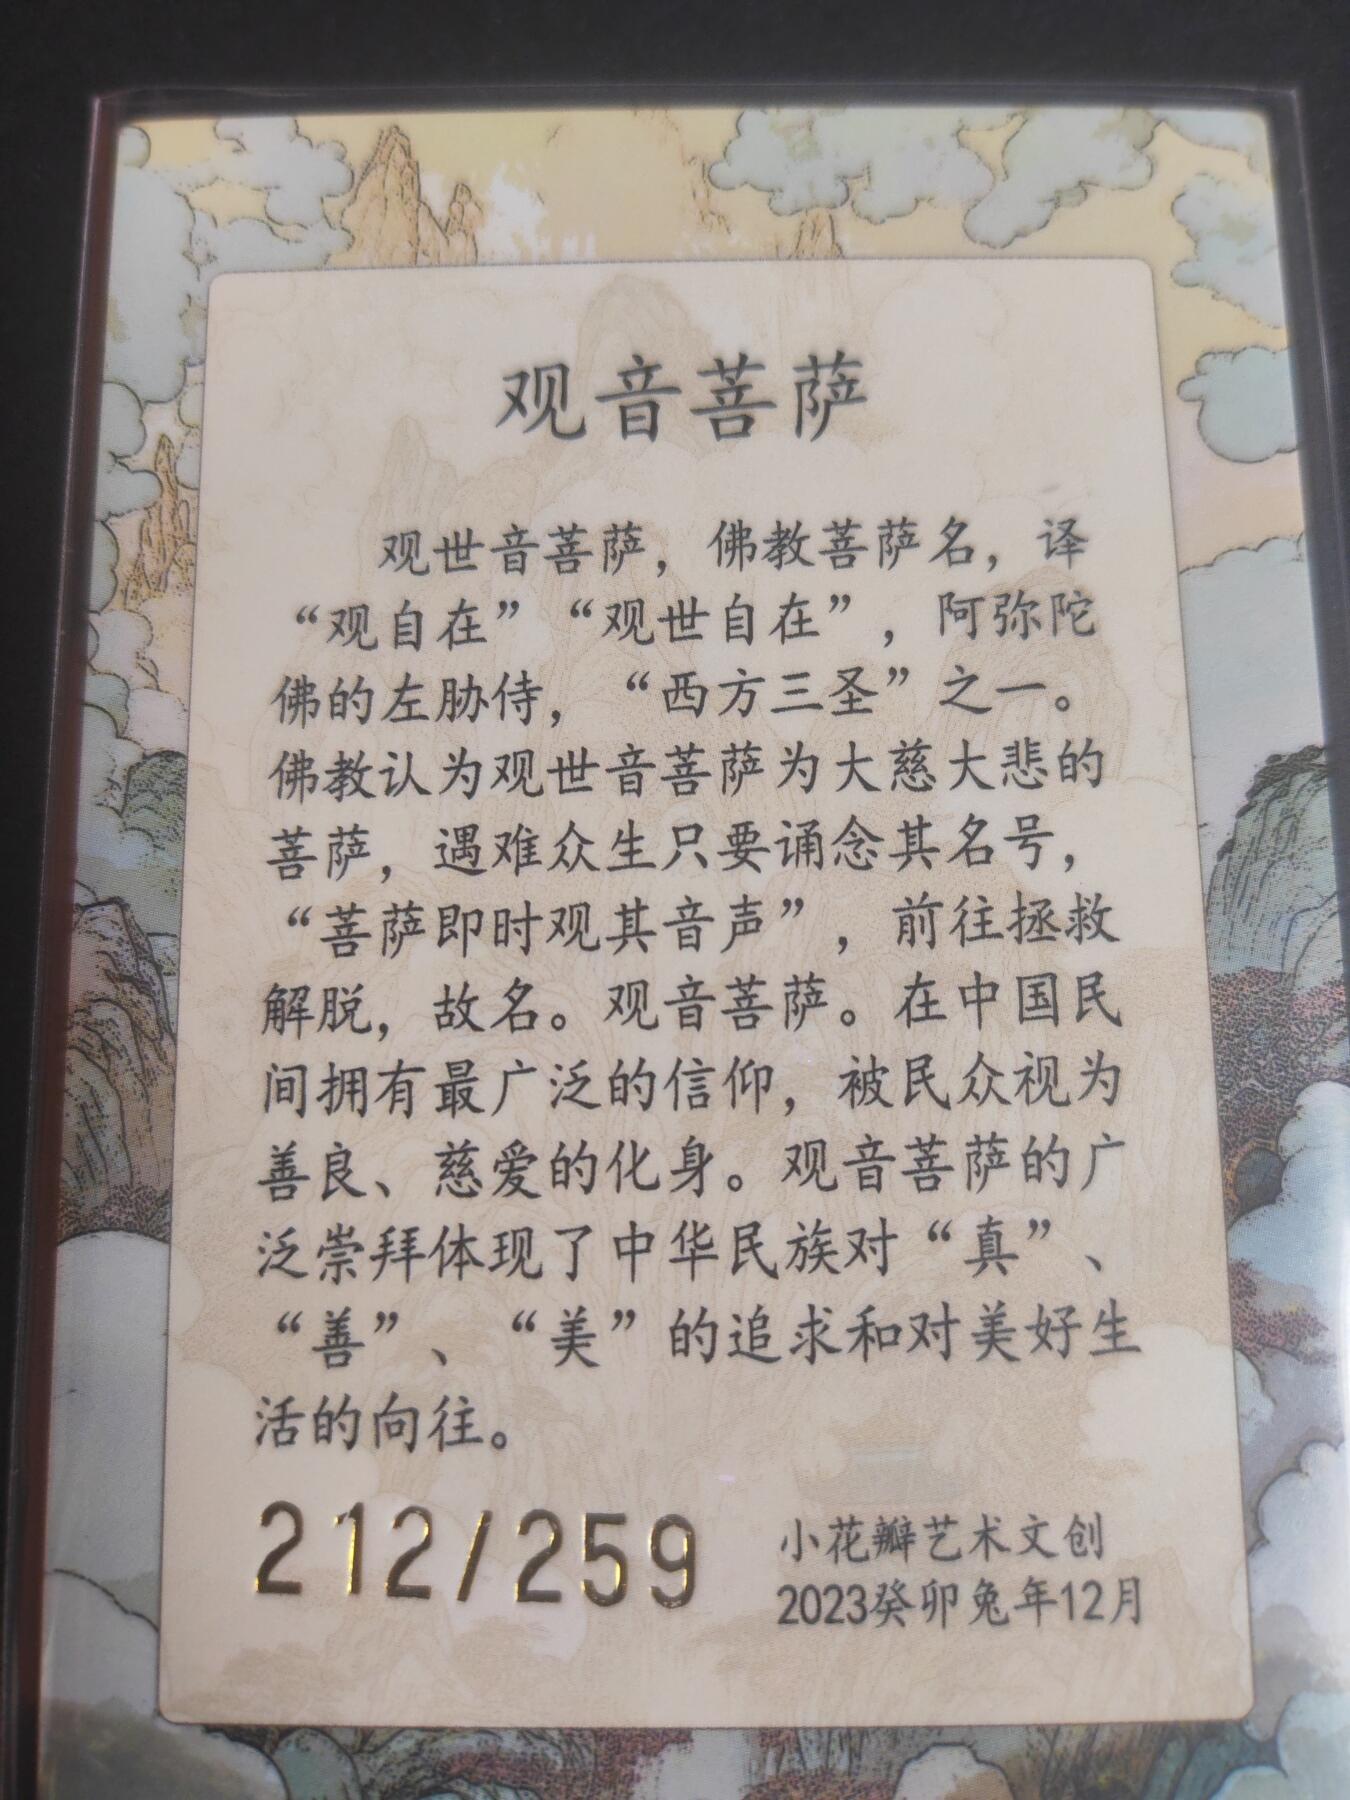 观音菩萨
观世音菩萨，佛教菩萨名，译
“观自在”“观世自在”，阿弥陀
佛的左胁侍，“西方三圣”之一。
佛教认为观世音菩萨为大慈大悲的
菩萨，遇难众生只要诵念其名号，
“菩萨即时观其音声”，前往拯救
解脱，故名。观音菩萨。在中国民
间拥有最广泛的信仰，被民众视为
善良、慈爱的化身。观音菩萨的广
泛崇拜体现了中华民族对“真”、
“善”、“美”的追求和对美好生
活的向往。
212/259
小花瓣艺术文创
2023癸卯兔年12月